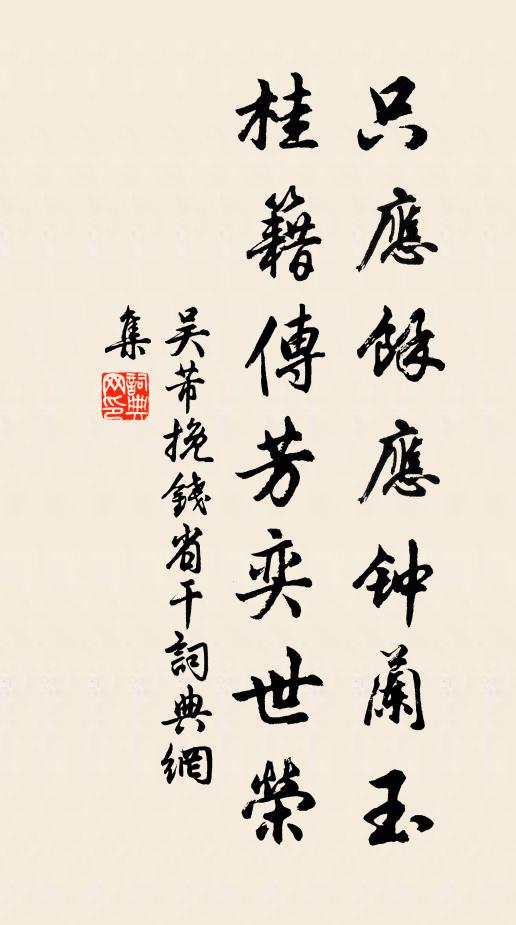 只應餘應钟蘭玉
桂籍傳芳奕世榮
吴芾挽錢省干詞典網
集
詞典网印